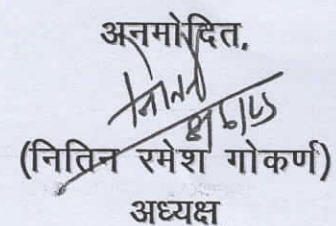 अनमोदित,
(नितिन रमेश गोकर्ण)
अध्यक्ष